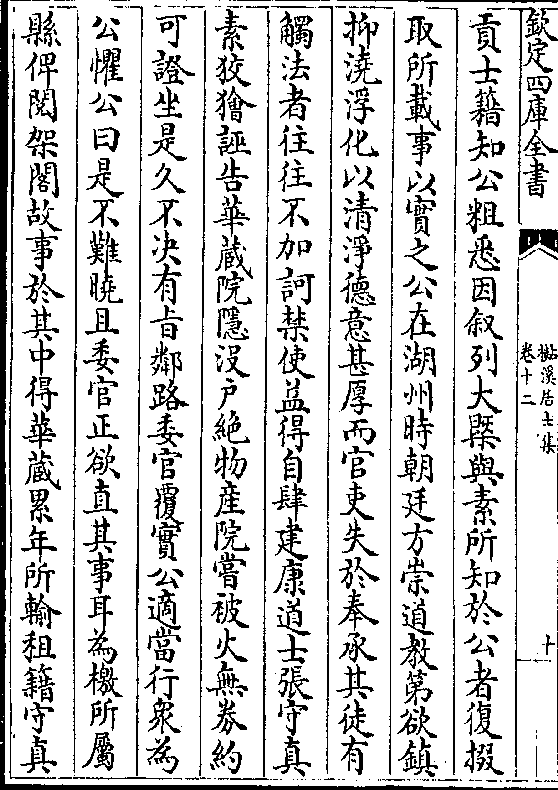 欽定四庫全書
㭊溪居士集
卷十二
十
貢士籍知公粗悉因叙列大槩與素所知於公者復掇
取所載事以實之公在湖州時朝廷方崇道教第欲鎮
抑澆浮化以清淨德意甚厚而官吏失於奉承其徒有
觸法者往往不加訶禁使益得自肆建康道士張守真
素狡獪誣告華蔵院隠没户絶物産院嘗被火無劵約
可證坐是久不決有㫖鄰路委官覆實公適當行衆為
公懼公曰是不難曉且委官正欲直其事耳為檄所屬
縣俾閲架閣故事於其中得華蔵累年所輸租籍守真